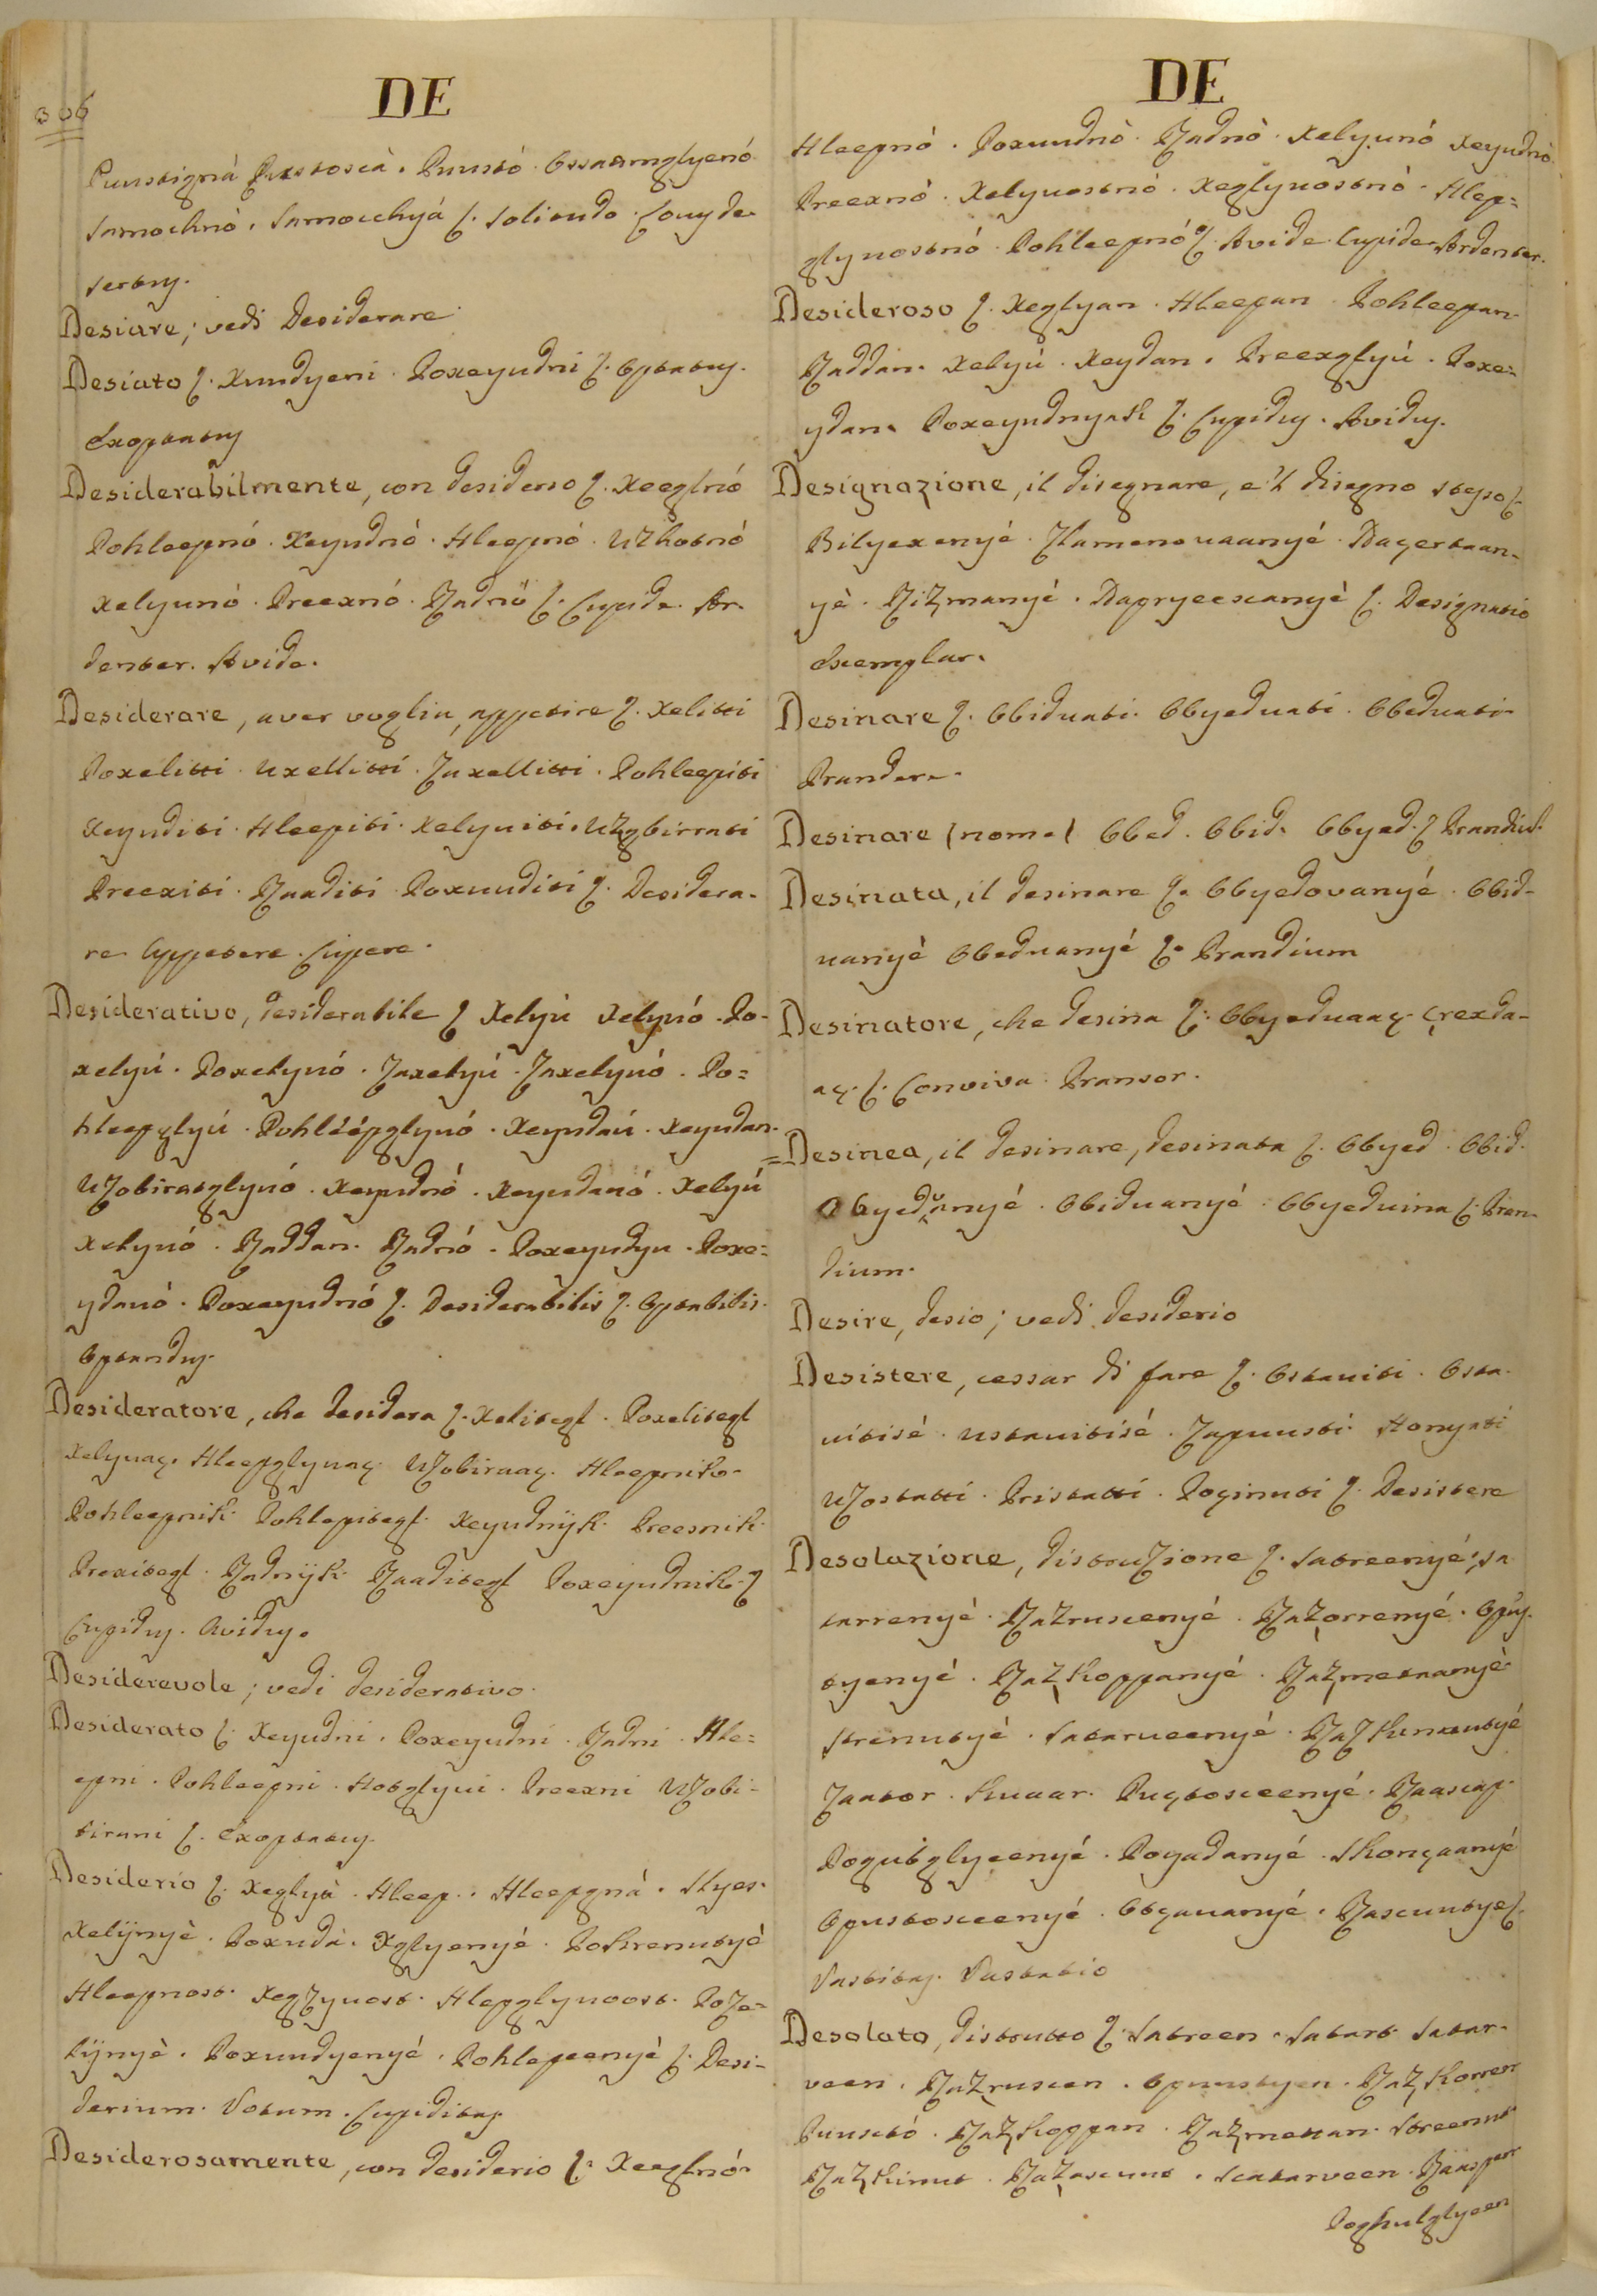 306
DE
Puustignà Pustoscà. Puustó. Ossaamglyenó
samochnó. Samocchyá ſ. solitudo. 
sertus.
Desiare; vedi Desiderare
Desiato ſ. Xuudyeni. Poxeyudni ſ. Optatus.
Exoptatus
Desiderabilmente, con desiderio ſ. Xeeglnó
Pohleepnó. Xeyudnó. Hleepnó. Uzhotnó
xelyunó. Preexnó. Rjadnó ſ. Cupide. Ar-
denter. Avide.
Desiderare, aver voglia, appetire ſ. Xelitti
Poxelitti. Uxellitti. Zaxellitti. Pohleepiti
Xeyuditi. Hleepiti. Xelyuiti. Uzgbirrati
Preexiti. Rjaaditi. Poxuuditi ſ. Desidera-
re Appetere. Cupere.
Desiderativo, desiderabile ſ Xelyú Xelyuó. Po-
xelyú. Poxelyuó. Zaxelyú. Zaxelyuó. Po=
hleepglyú. Pohléépglyuó. Xeyudaú. Xeyudan.
Uzobiratglyuó. Xeyudnó. Xeyudanó. Xelyú
xelyuó. Rjaddan. Rjadnó. Poxeyudyu. Poxe=
ydanó. Poxeyudnó ſ. Desiderabilis ſ. Optabilis.
Optandus.
Desideratore, che desidera ſ. Xelitegl. Poxelitegl
Xelyuaç. Hleepglyuaç. Uzobiraaç. Hleepnik.
Pohleepnik. Pohlepitegl. Xeyudnÿk. Preesnik.
Prexitegl. Rjadnÿk. Rjaaditegl Poxeyudnik. ſ
Cupidus. Avidus.
Desiderevole; vedi desiderativo.
Desiderato ſ. Xeyudni. Poxeyudni. Rjadni. Hle=
epni. Pohleepni. Hotglyui. Preexni Uzobi-
tirani ſ. Exoptatus.
Desiderio ſ. Xeglyà. Hleep. Hleepgná. Htyes.
Xelÿnyè. Poxudà. Xglyenyé. Pokrenutyè
Hleepnost. Hlepglynoost. Poze=
lÿnyè. Poxuudyenyé. Pohlepeenyé ſ. Desi-
derium. Votum. Cupiditas.
Desiderosamente, con desiderio ſ. Xeeglnó.
DE
Hleepnó. Poxuudnò. Rjadnò. Xelyunó Xeyudnò
Preexnó. Xelyuostnó. Xeglyuostnó. Hlep=
glynostnó. Pohleepnó ſ. Avide Cupide Ardenter.
Desideroso ſ. Xeglyan. Hleepan. Pohleepan.
Rjaddan. Xelyú. Xeydan. Preexglyú. Poxe=
ydan. Poxeyudnyak ſ. Cupidus. Avidus.
Designazione, il disegnare, e'l disegno stesso ſ.
Bilyexenyé. Zlamenovaanyé. Naçertaan-
yè. Rizmanyé. Napryeecanyé ſ. Designatio
Exemplar.
Desinare ſ. Obiduati. Obyeduati. Obeduati.
Prandere.
Desinare (nome) Obed. Obid. Obyed. ſ Prandiu.
Desinata, il desinare ſ. Obyedovanyé. Obid-
uanyè Obeduanyé ſ. Prandium
Desinatore, che desina ſ. Obyeduaaç. Çrexda-
aç. ſ. Conviva. Pransor.
=Desinea, il desinare, desinata ſ. Obyed. Obid.
Obyeduanyé. Obiduanyé. Obyeduina ſ. Pran-
dium.
Desire, desio; vedi desiderio
Desistere, cessar di fare ſ. Ostauiti. Osta-
uitisé. Ustauitisé. Zapuusti. Konyati
Uzostatti. Pristatti. Poçinuti ſ. Desistere
Desolazione, distruzione ſ. Satreenyé; Sa
tarrenyé. Razruscenyé. Razorrenyé. Opus-
tyenyé. Razkoppanyé. Razmetaanyè
Strenutyé. Satarueenyé. Razkinnutyé
Zaator. Kuaar. Puçtosceenyé. Raascap.
Pogubglyeenyé. Pogadanyé. Skonçaanyé
Opustosceenyé. Otçauanyé. Rascuutye ſ.
Vastitas. Vastatio
Desolato, distrutto ſ. Satreen. Satart. Satar-
veen. Razruscen. Opuustyen. Razkorren
Puustó. Razkoppan. Razmettan. Streenut
Razkinut. Razascunt. Scatarveen. Raaspan
Poghulglyeen